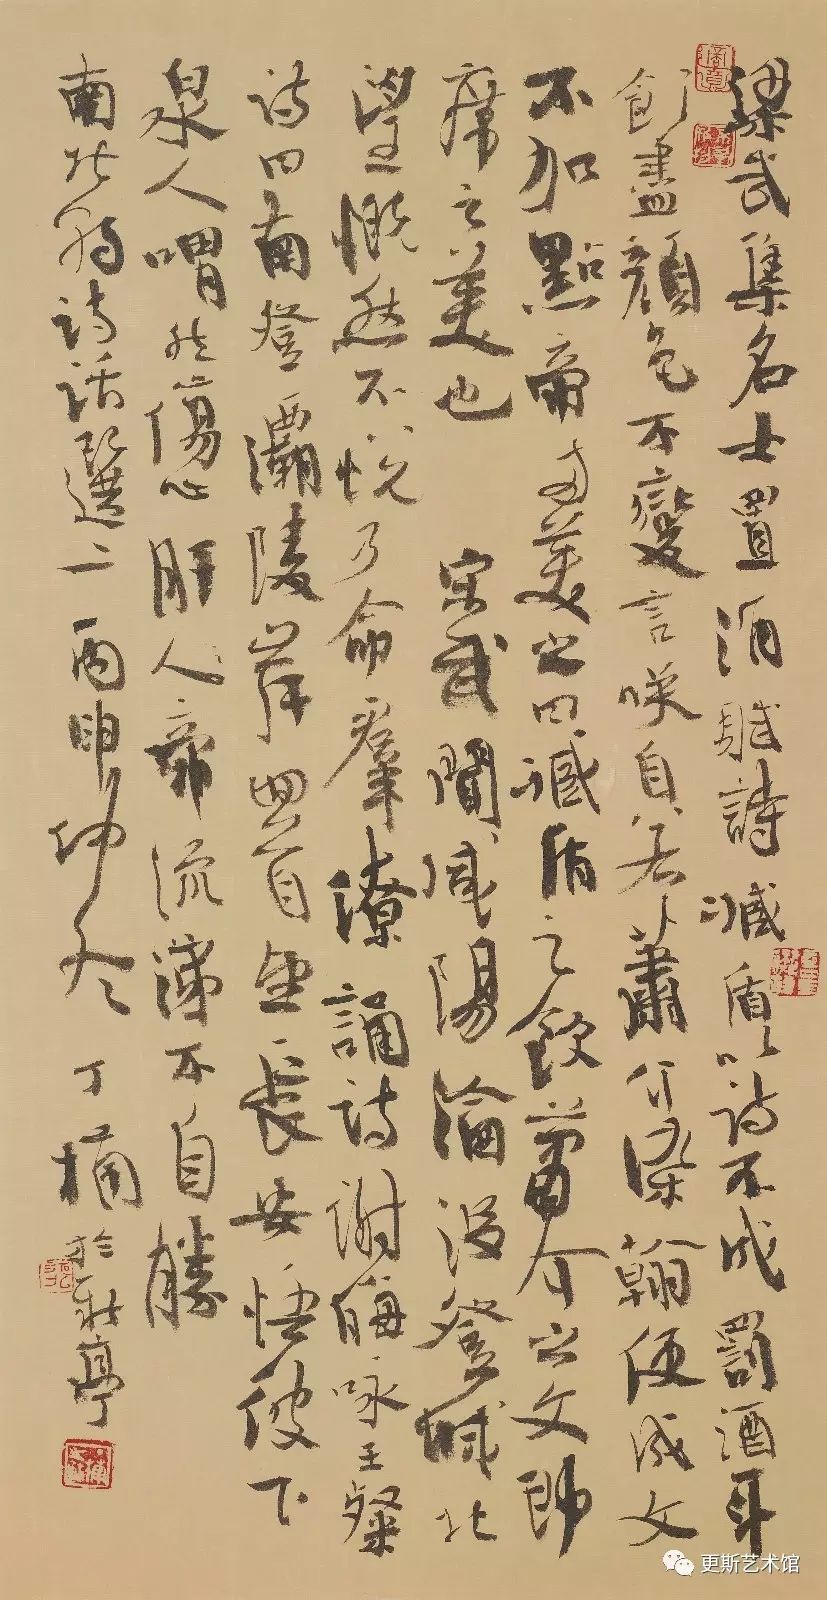 梁武集名士置酒賦詩臧盾以诗不成罰酒斗
飲盡顏色不變言笑自若蕭介染翰便成文
不加點帝两美之曰臧盾之飲蕭介之文即
席之美也 宋武聞咸陽淪沒登城北
望慨然不悅乃命羣僚誦诗谢晦咏王粲
诗曰南登灞陵岸回首望長安悟彼下
泉人喟然傷心肝人帝流涕不自勝
南北朝诗话選二丙申仲冬丁楠於
更斯艺术馆